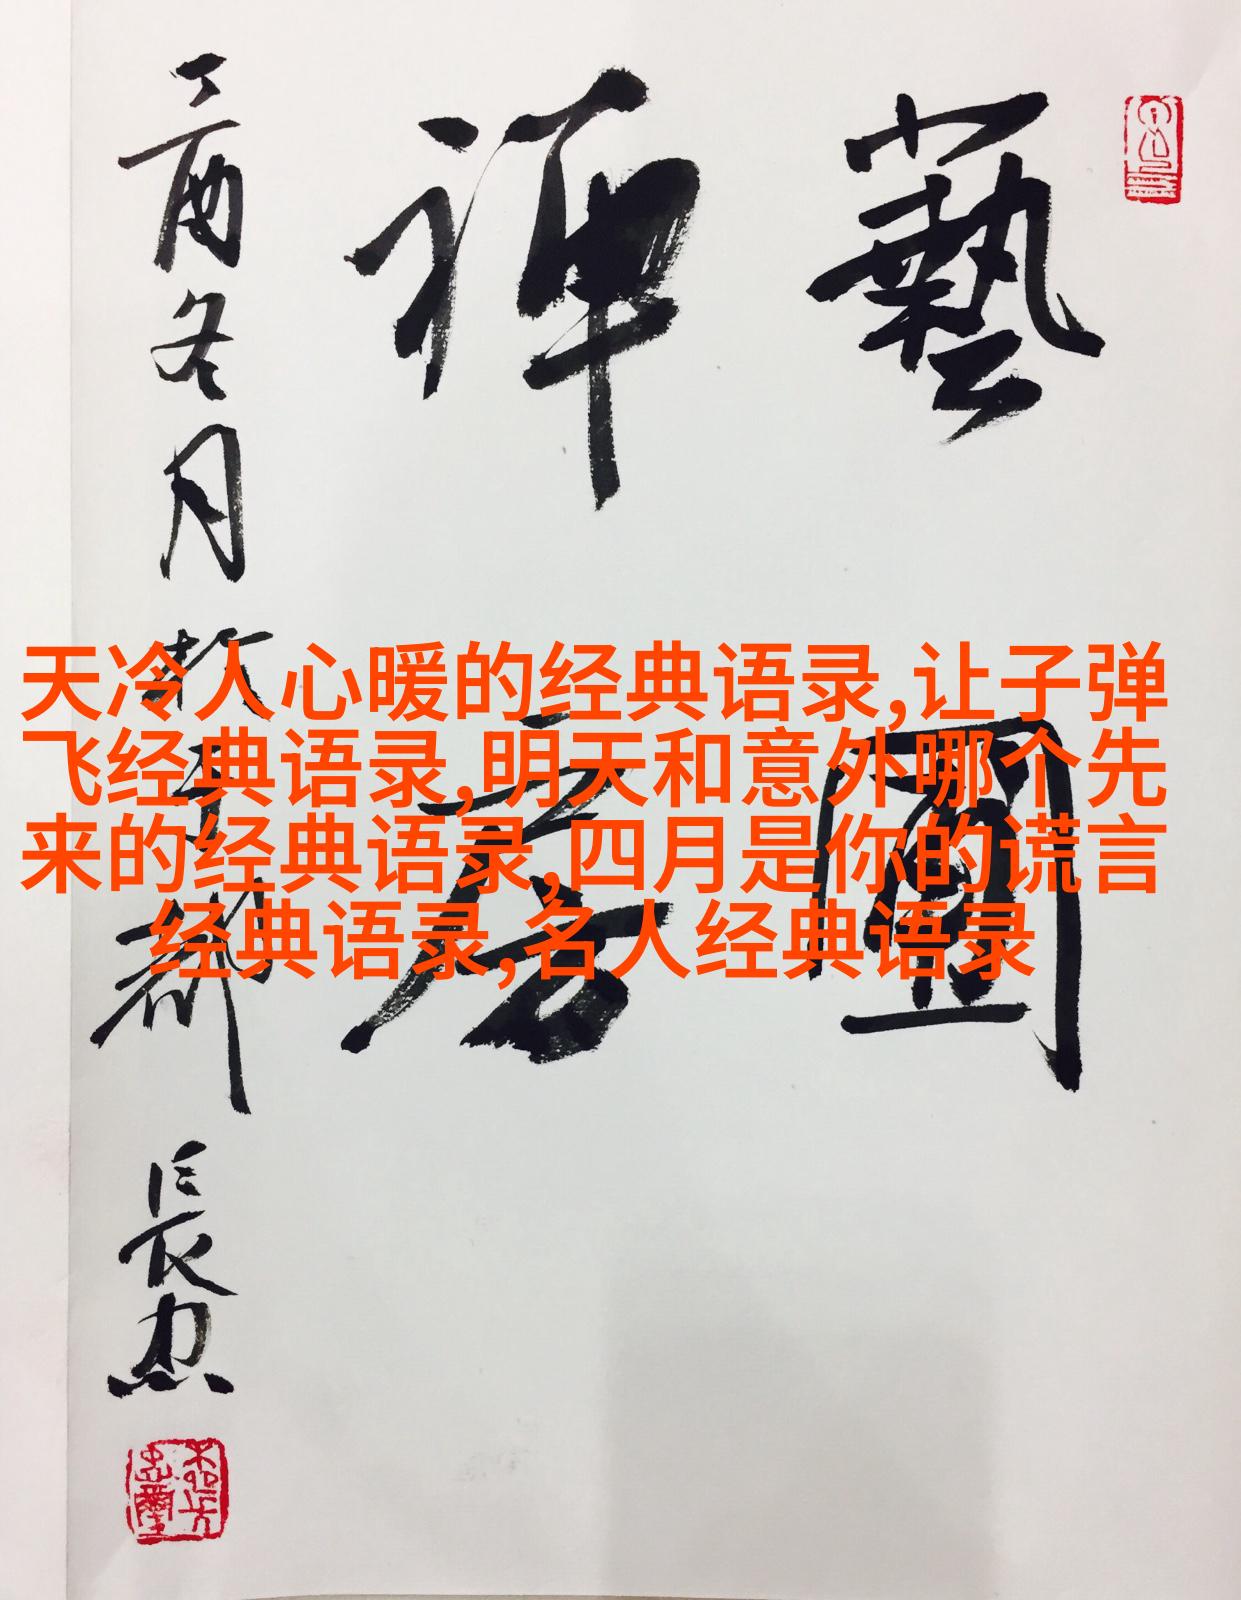 藝
禪
丁酉冬月
天冷人心暖的经典语录,让子弹
飞经典语录,明天和意外哪个先
来的经典语录,四月是你的谎言
经典语录,名人经典语录